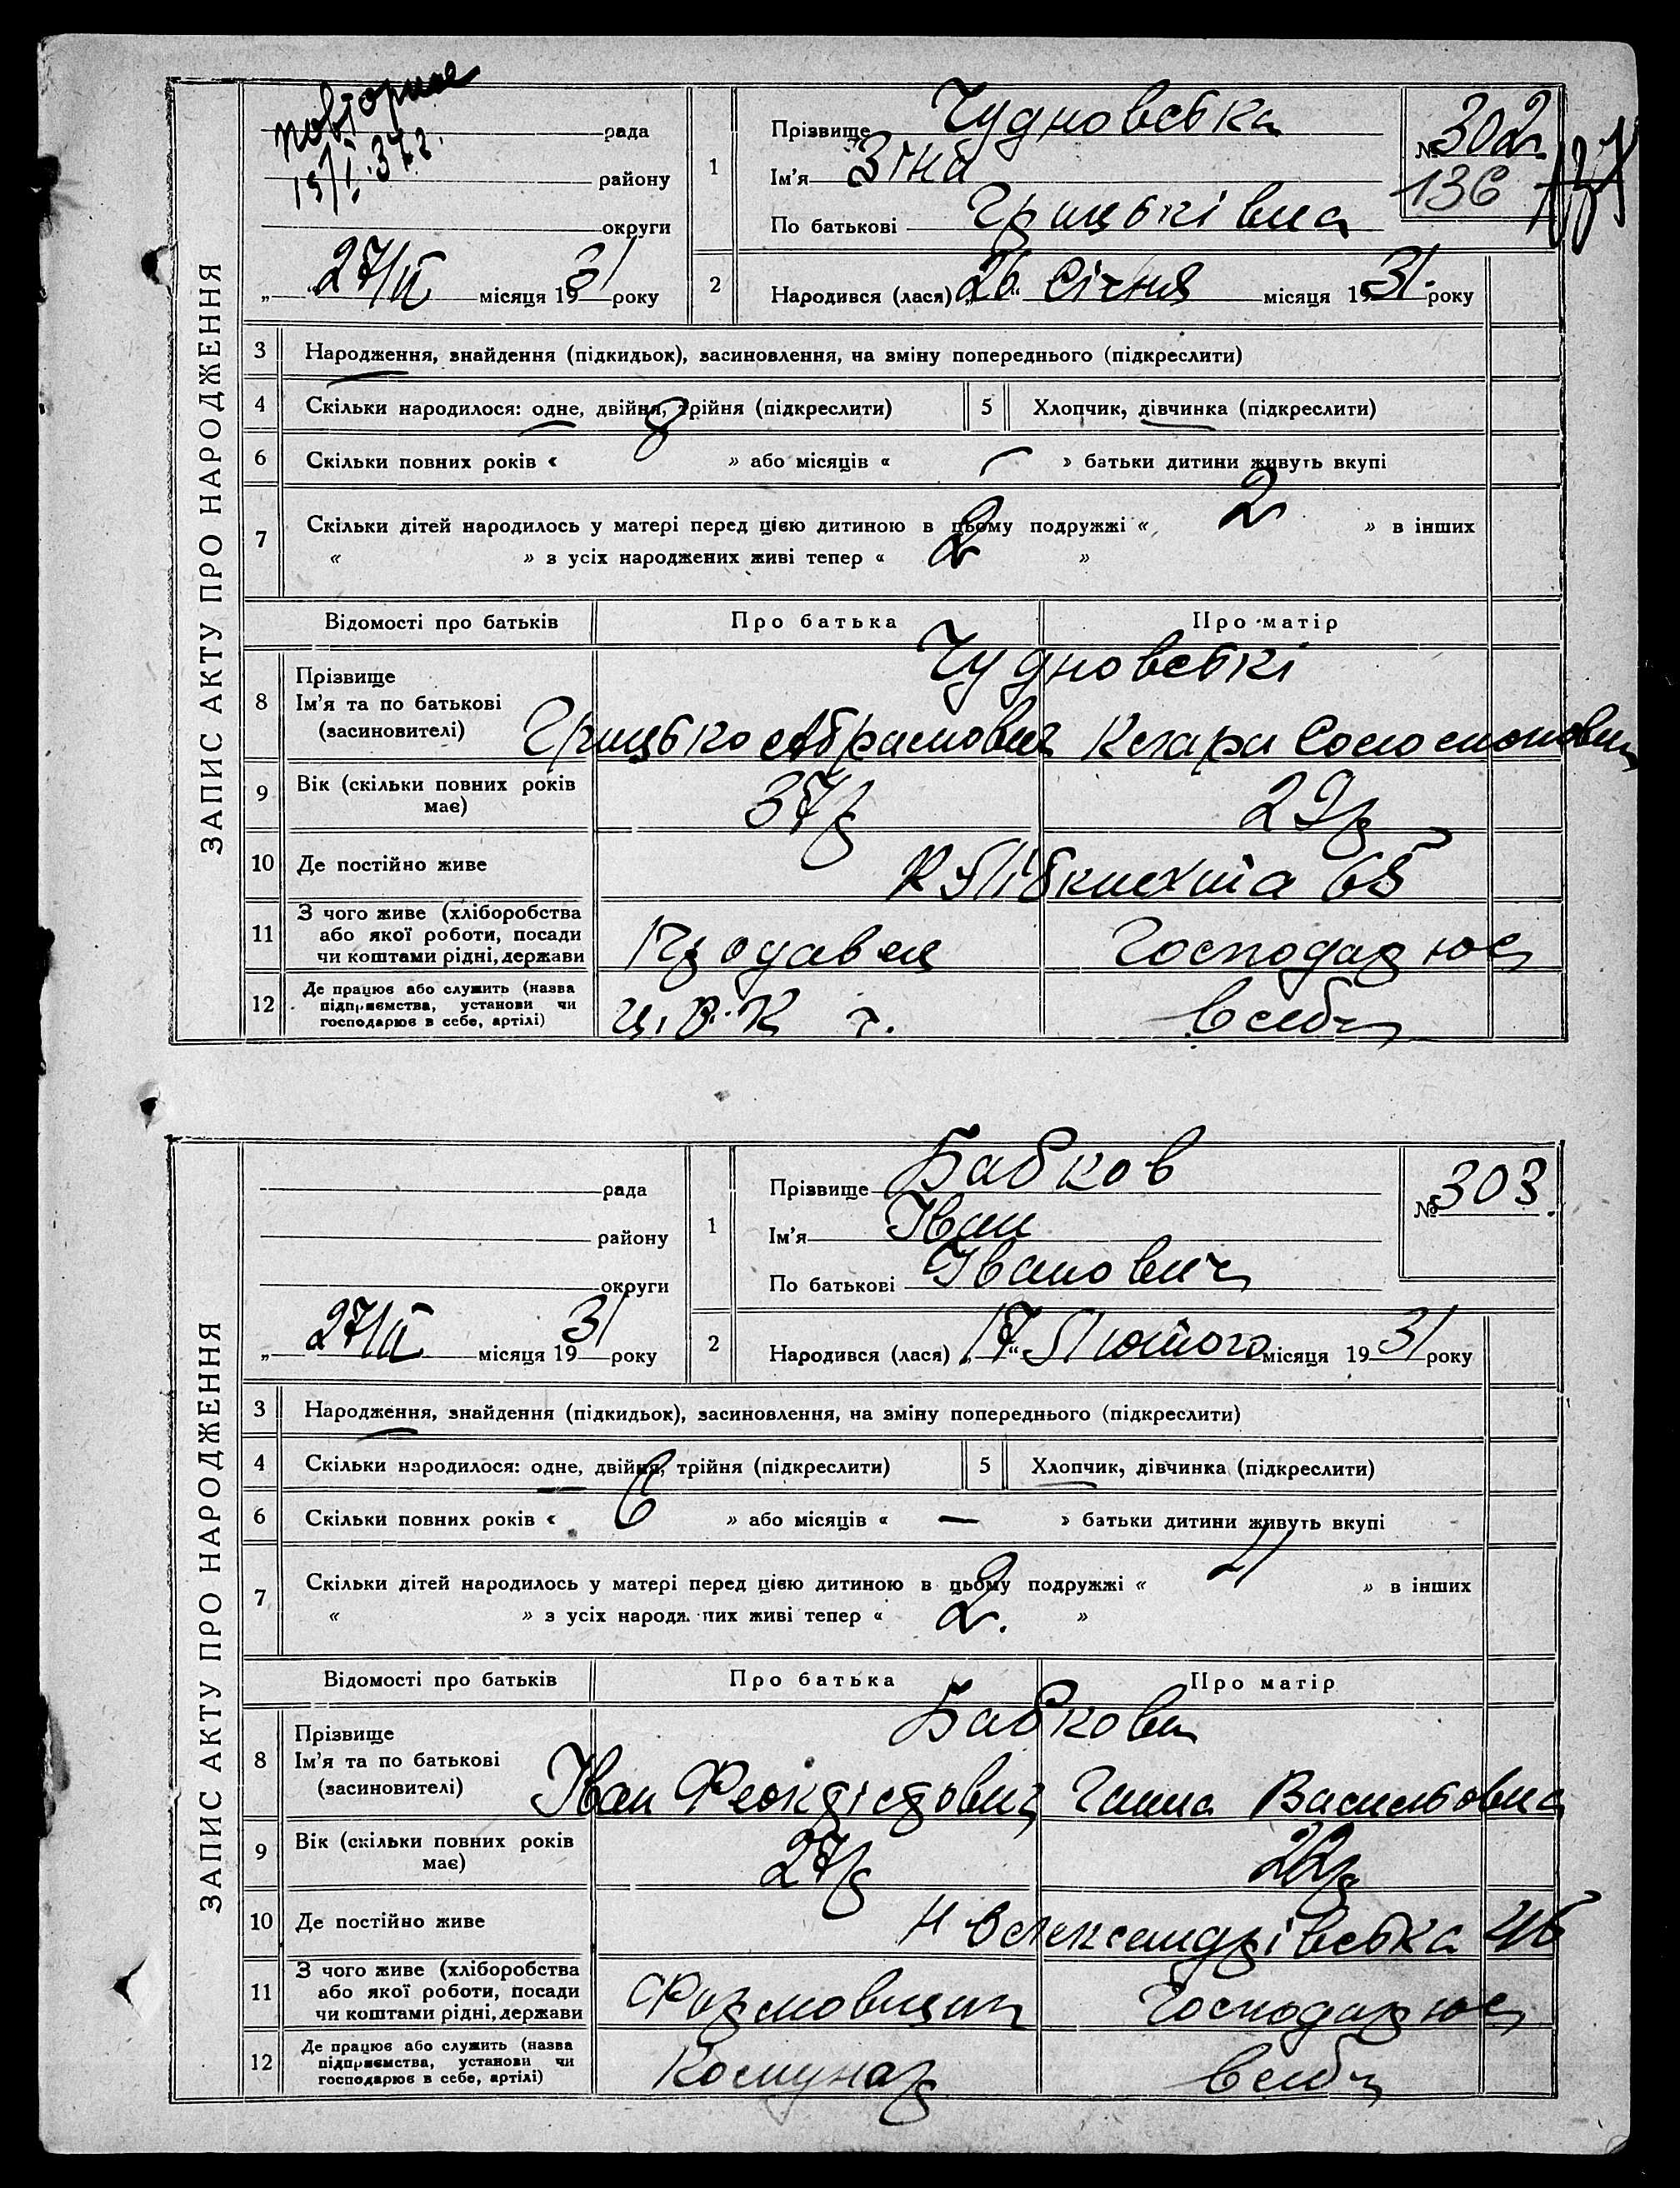 ЗАПИС АКТУ ПРО НАРОДЖЕННЯ
повторное
15/I.37 г.
рада
району
округи
„ 27/II місяця 1931 року
1
Прізвище Чудновська
Ім’я Зіна
По батькові Грицьківна
№ 302
136
2
Народився (лася) „26“ Січня місяця 1931 року
3 Народження, знайдення (підкидьок), засиновлення, на зміну попереднього (підкреслити)
4 Скільки народилося: одне, двійня, трійня (підкреслити) 5 Хлопчик, дівчинка (підкреслити)
6 Скільки повних років « 8 » або місяців « — » батьки дитини живуть вкупі
7 Скільки дітей народилось у матері перед цією дитиною в цьому подружжі « 2 » в інших
« » з усіх народжених живі тепер « 2 »
Відомості про батьків Про батька Про матір
Чудновські
8 Прізвище
Ім’я та по батькові
(засиновителі)
Грицько Абрамович Клара Соломоновн
9 Вік (скільки повних років має) 37р 29р
10 Де постійно живе К Лібкнехта 65
11 З чого живе (хліборобства
або якої роботи, посади
чи коштами рідні, держави
Продавец Господарює
12 Де працює або служить (назва
підприємства, установи чи
господарює в себе, артілі)
Ц.Р.К в себе
ЗАПИС АКТУ ПРО НАРОДЖЕННЯ
рада
району
округи
„ 27/II місяця 1931 року
1
Прізвище Бабков
Ім’я Іван
По батькові Іванович
№ 303.
2
Народився (лася) „17“ Лютого місяця 1931 року
3 Народження, знайдення (підкидьок), засиновлення, на зміну попереднього (підкреслити)
4 Скільки народилося: одне, двійня, трійня (підкреслити) 5 Хлопчик, дівчинка (підкреслити)
6 Скільки повних років « 6 » або місяців « — » батьки дитини живуть вкупі
7 Скільки дітей народилось у матері перед цією дитиною в цьому подружжі « » в інших
« » з усіх народжених живі тепер « 2. »
Відомості про батьків Про батька Про матір
Бабкови
8 Прізвище
Ім’я та по батькові
(засиновителі)
Іван Феоктістович Ганна Васильовна
9 Вік (скільки повних років має) 27р 22р
10 Де постійно живе Н Олександрівська 46
11 З чого живе (хліборобства
або якої роботи, посади
чи коштами рідні, держави
Формовщик Господарює
12 Де працює або служить (назва
підприємства, установи чи
господарює в себе, артілі)
Комунар в себе